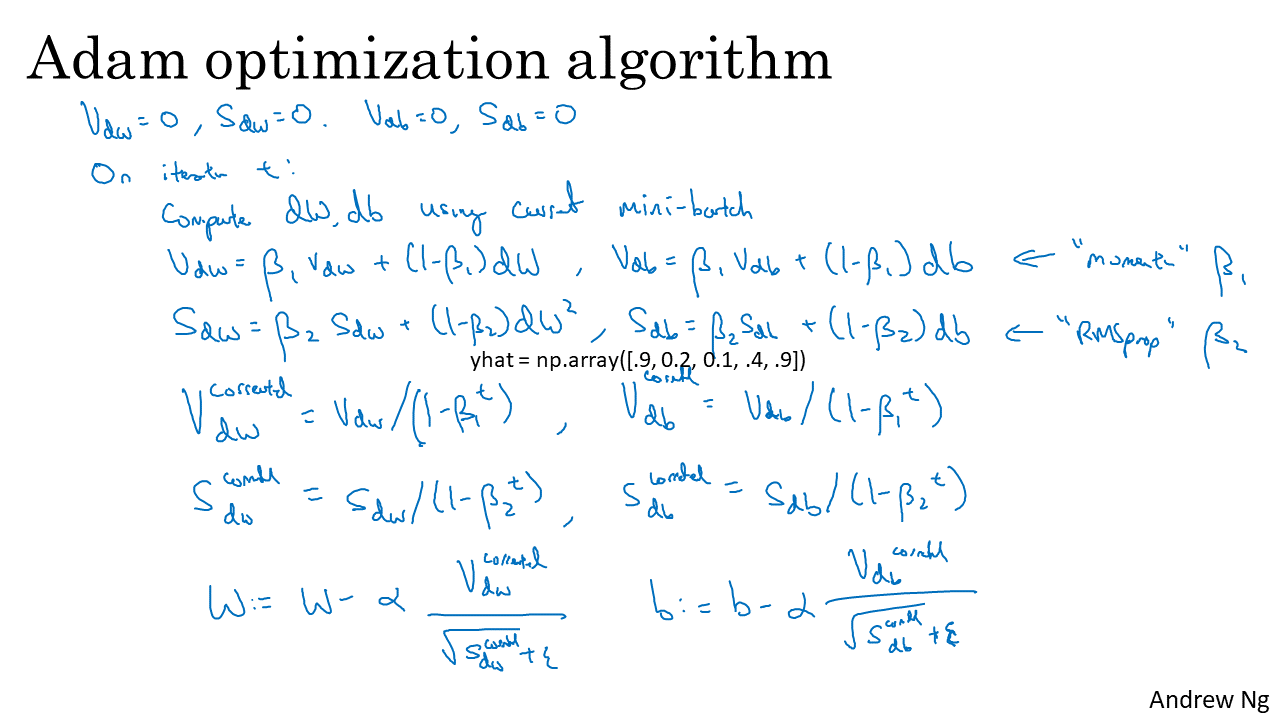 Adam optimization algorithm
V_dw = 0, S_dw = 0. V_db = 0, S_db = 0
On iteratn t:
Compute dW, db using current mini-batch
V_dw = β₁ V_dw + (1-β₁) dW, V_db = β₁ V_db + (1-β₁) db ← "moment" β₁
S_dw = β₂ S_dw + (1-β₂) dW², S_db = β₂ S_db + (1-β₂) db ← "RMSprop" β₂
yhat = np.array([.9, 0.2, 0.1, .4, .9])
V_dw^corrected = V_dw / (1-β₁^t), V_db^corrected = V_db / (1-β₁^t)
S_dw^corrected = S_dw / (1-β₂^t), S_db^corrected = S_db / (1-β₂^t)
W := W - α V_dw^corrected / (√S_dw^corrected + ε) b := b - α V_db^corrected / (√S_db^corrected + ε)
Andrew Ng